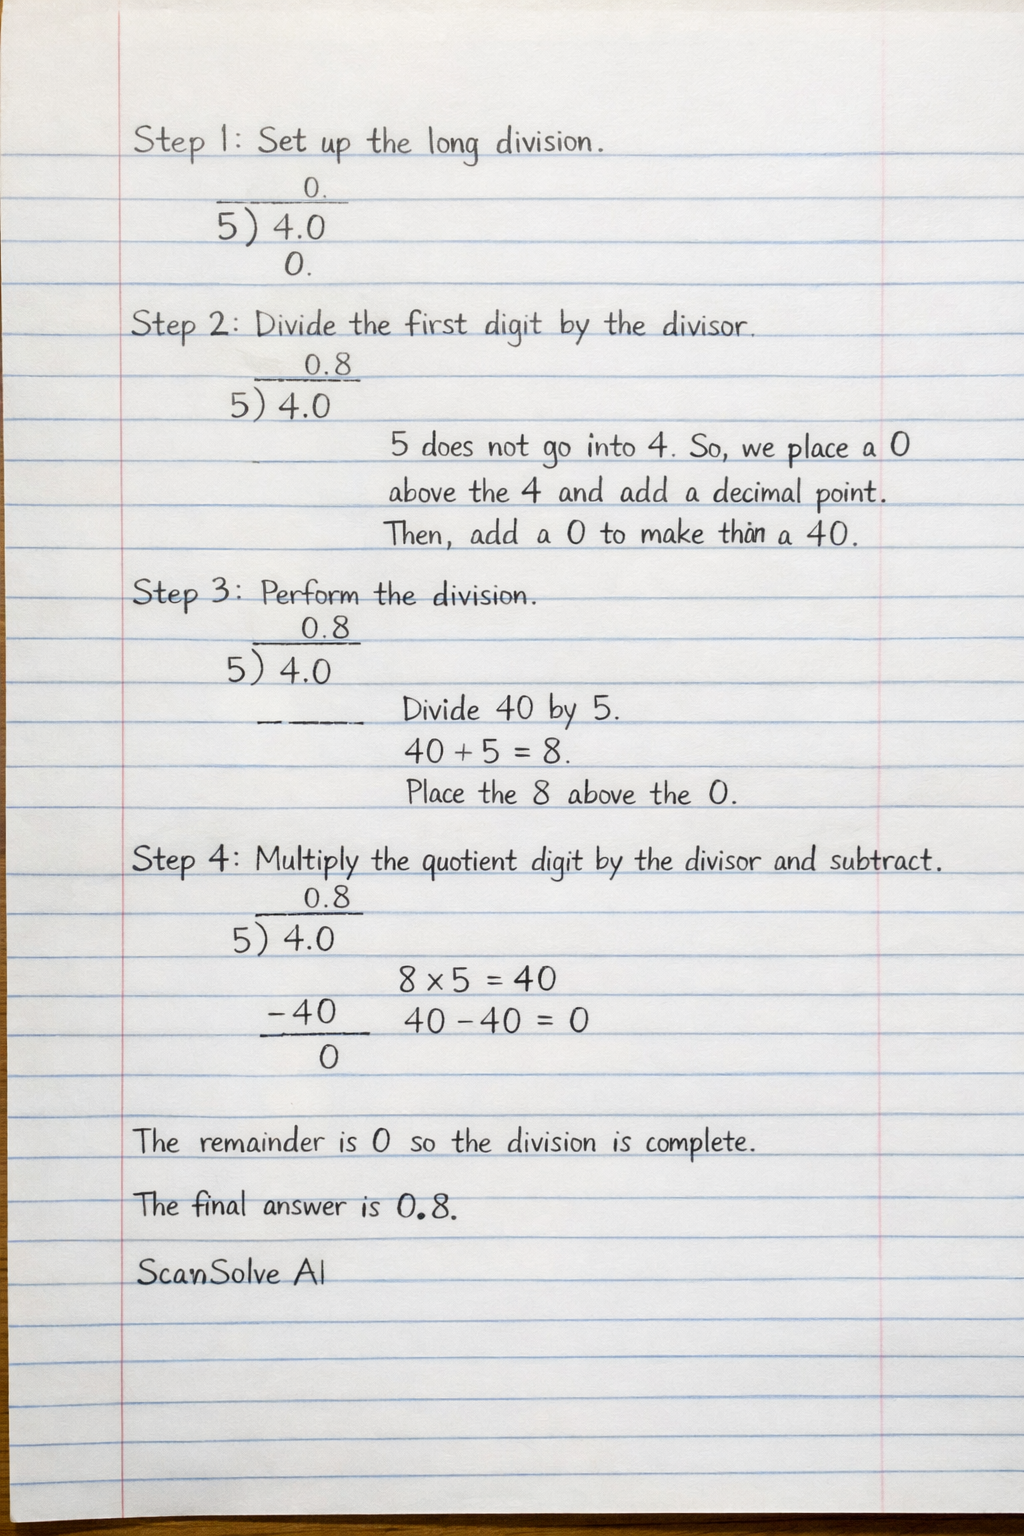 Step 1: Set up the long division.
0.
5) 4.0
0.
Step 2: Divide the first digit by the divisor.
0.8
5) 4.0
5 does not go into 4. So, we place a 0
above the 4 and add a decimal point.
Then, add a 0 to make a 40.
Step 3: Perform the division.
0.8
5) 4.0
Divide 40 by 5.
40 + 5 = 8.
Place the 8 above the 0.
Step 4: Multiply the quotient digit by the divisor and subtract.
0.8
5) 4.0
8 × 5 = 40
-40 40 - 40 = 0
0
The remainder is 0 so the division is complete.
The final answer is 0.8.
ScanSolve AI